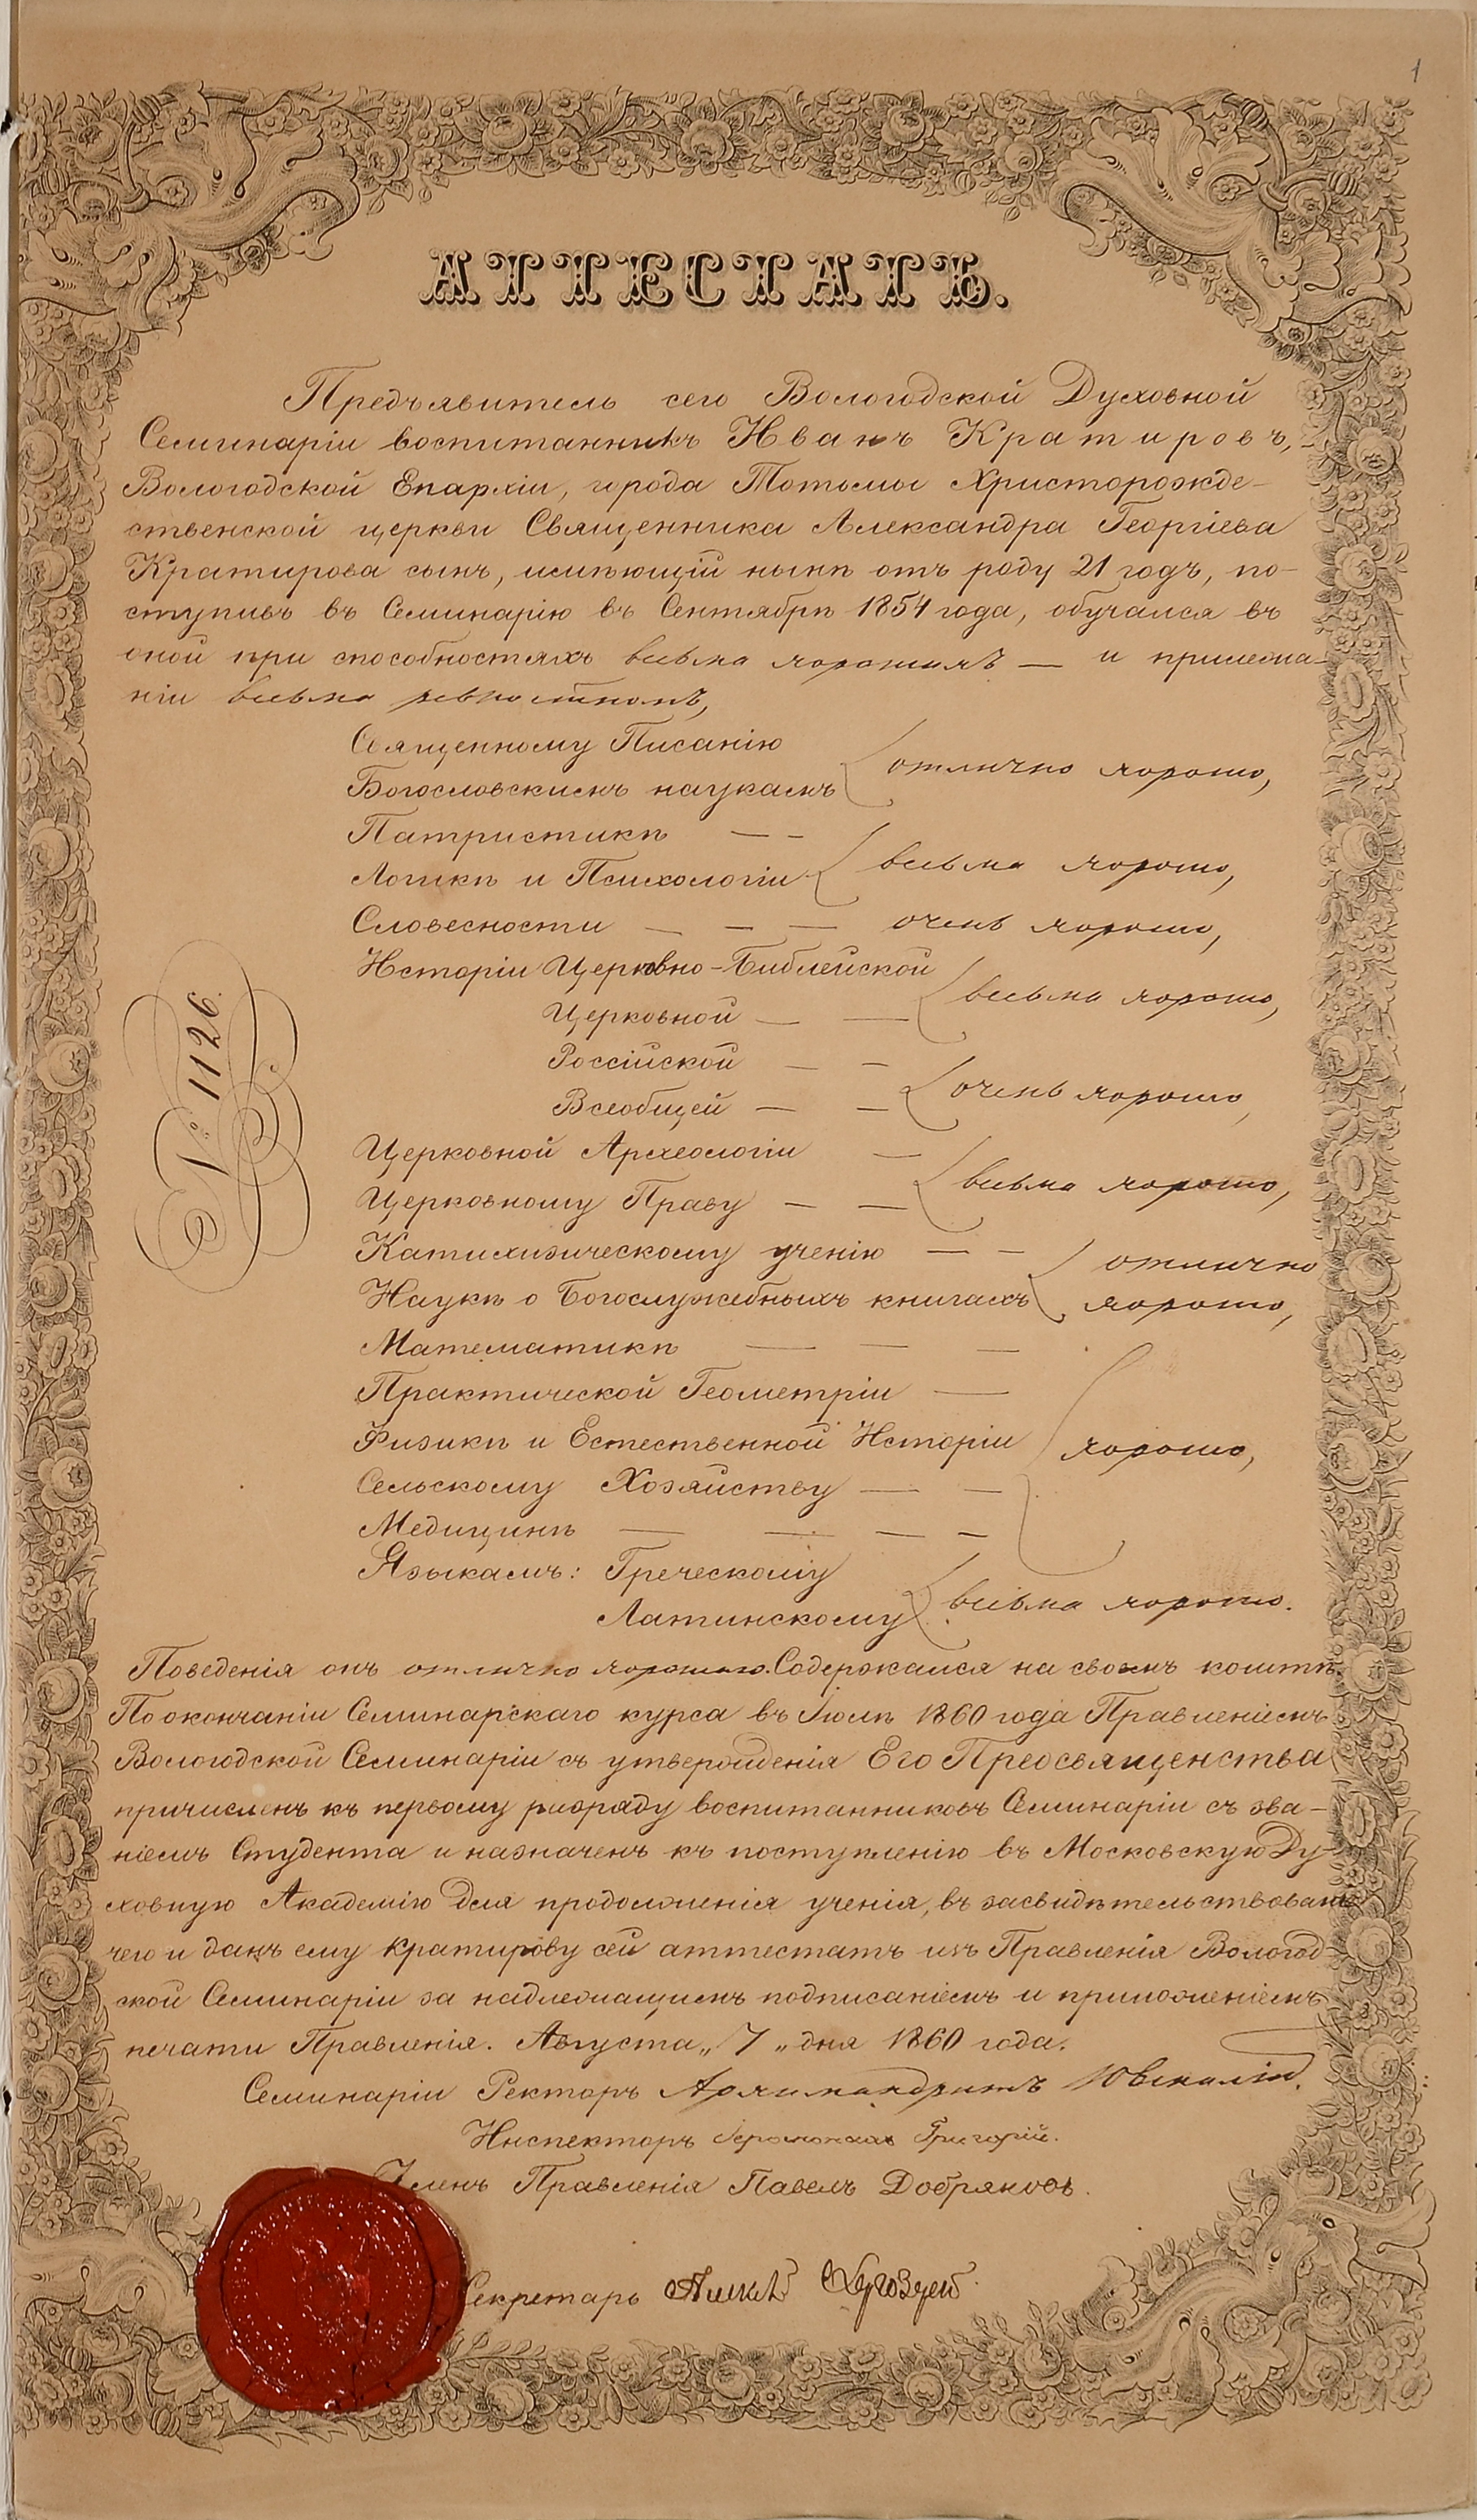 1
АТТЕСТАТЪ.
Предъявитель сего Вологодской Духовной
Семинаріи воспитанникъ Иванъ Кратировъ,
Вологодской Епархіи, города Тотьмы Христорожде-
ственской церкви Священника Александра Георгіева
Кратирова сынъ, имѣющій нынѣ отъ роду 21 годъ, по-
ступивъ въ Семинарію въ Сентябрѣ 1854 года, обучался въ
оной при способностяхъ весьма хорошихъ — и прилежа-
ніи весьма ревностномъ,
Священному Писанію
Богословскимъ наукамъ } отлично хорошо,
Патристикѣ — —
Логикѣ и Психологіи } весьма хорошо,
Словесности — — — очень хорошо,
Исторіи Церковно-Библейской
Церковной — — } весьма хорошо,
Россійской — —
Всеобщей — — } очень хорошо,
Церковной Археологіи —
Церковному Праву — — } весьма хорошо,
Катихизическому ученію — — } отлично
Наукѣ о Богослужебныхъ книгахъ } хорошо,
Математикѣ — — —
Практической Геометріи —
Физикѣ и Естественной Исторіи } хорошо,
Сельскому Хозяйству — —
Медицинѣ — — — —
Языкамъ: Греческому
Латинскому } весьма хорошо.
№ 1126.
Поведенія онъ отлично хорошаго. Содержался на своемъ коштѣ.
По окончаніи Семинарскаго курса въ Іюлѣ 1860 года Правленіемъ
Вологодской Семинаріи съ утвержденія Его Преосвященства
причисленъ къ первому разряду воспитанниковъ Семинаріи съ зва-
ніемъ Студента и назначенъ къ поступленію въ Московскую Ду-
ховную Академію для продолженія ученія, въ засвидѣтельствованіе
чего и данъ ему Кратирову сей аттестатъ изъ Правленія Вологод-
ской Семинаріи за надлежащимъ подписаніемъ и приложеніемъ
печати Правленія. Августа „ 7 „ дня 1860 года.
Семинаріи Ректоръ Архимандритъ Ювеналій.
Инспекторъ Іеромонахъ Григорій.
Членъ Правленія Павелъ Добряковъ.
Секретарь